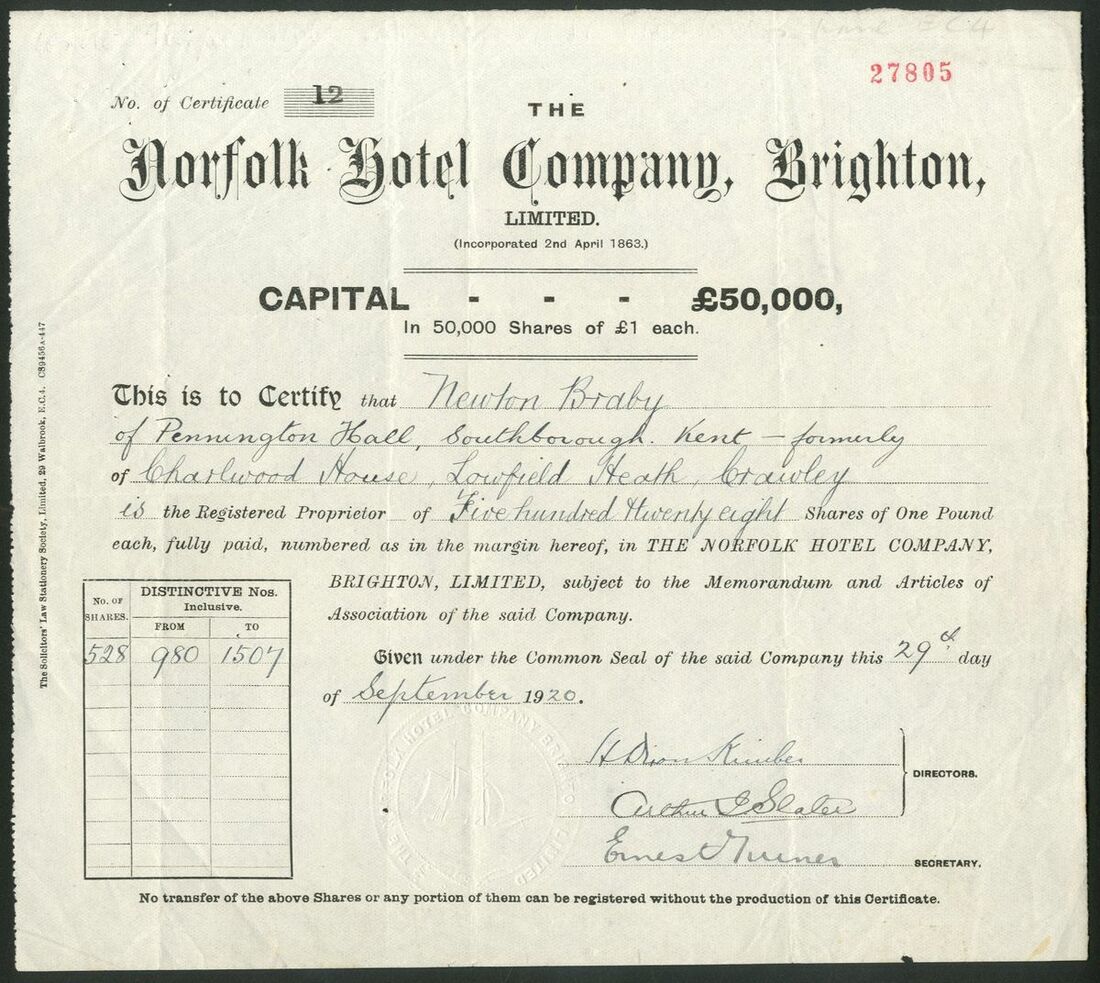 27805
No. of Certificate 12
THE
Norfolk Hotel Company, Brighton,
LIMITED.
(Incorporated 2nd April 1863.)
CAPITAL - - - £50,000,
In 50,000 Shares of £1 each.
This is to Certify that Newton Braby
of Pennington Hall, Southborough. Kent – formerly
of Charlwood House, Lowfield Heath, Crawley
is the Registered Proprietor of Five hundred & twenty eight Shares of One Pound
each, fully paid, numbered as in the margin hereof, in THE NORFOLK HOTEL COMPANY,
BRIGHTON, LIMITED, subject to the Memorandum and Articles of
Association of the said Company.
No. OF SHARES. DISTINCTIVE Nos. Inclusive.
FROM TO
528 980 1507
Given under the Common Seal of the said Company this 29th day
of September 1920.
Kimber
DIRECTORS.
Arthur Slater
Ernest Turner SECRETARY.
No transfer of the above Shares or any portion of them can be registered without the production of this Certificate.
The Solicitors' Law Stationery Society, Limited, 29 Walbrook, E.C.4. C89456A-447